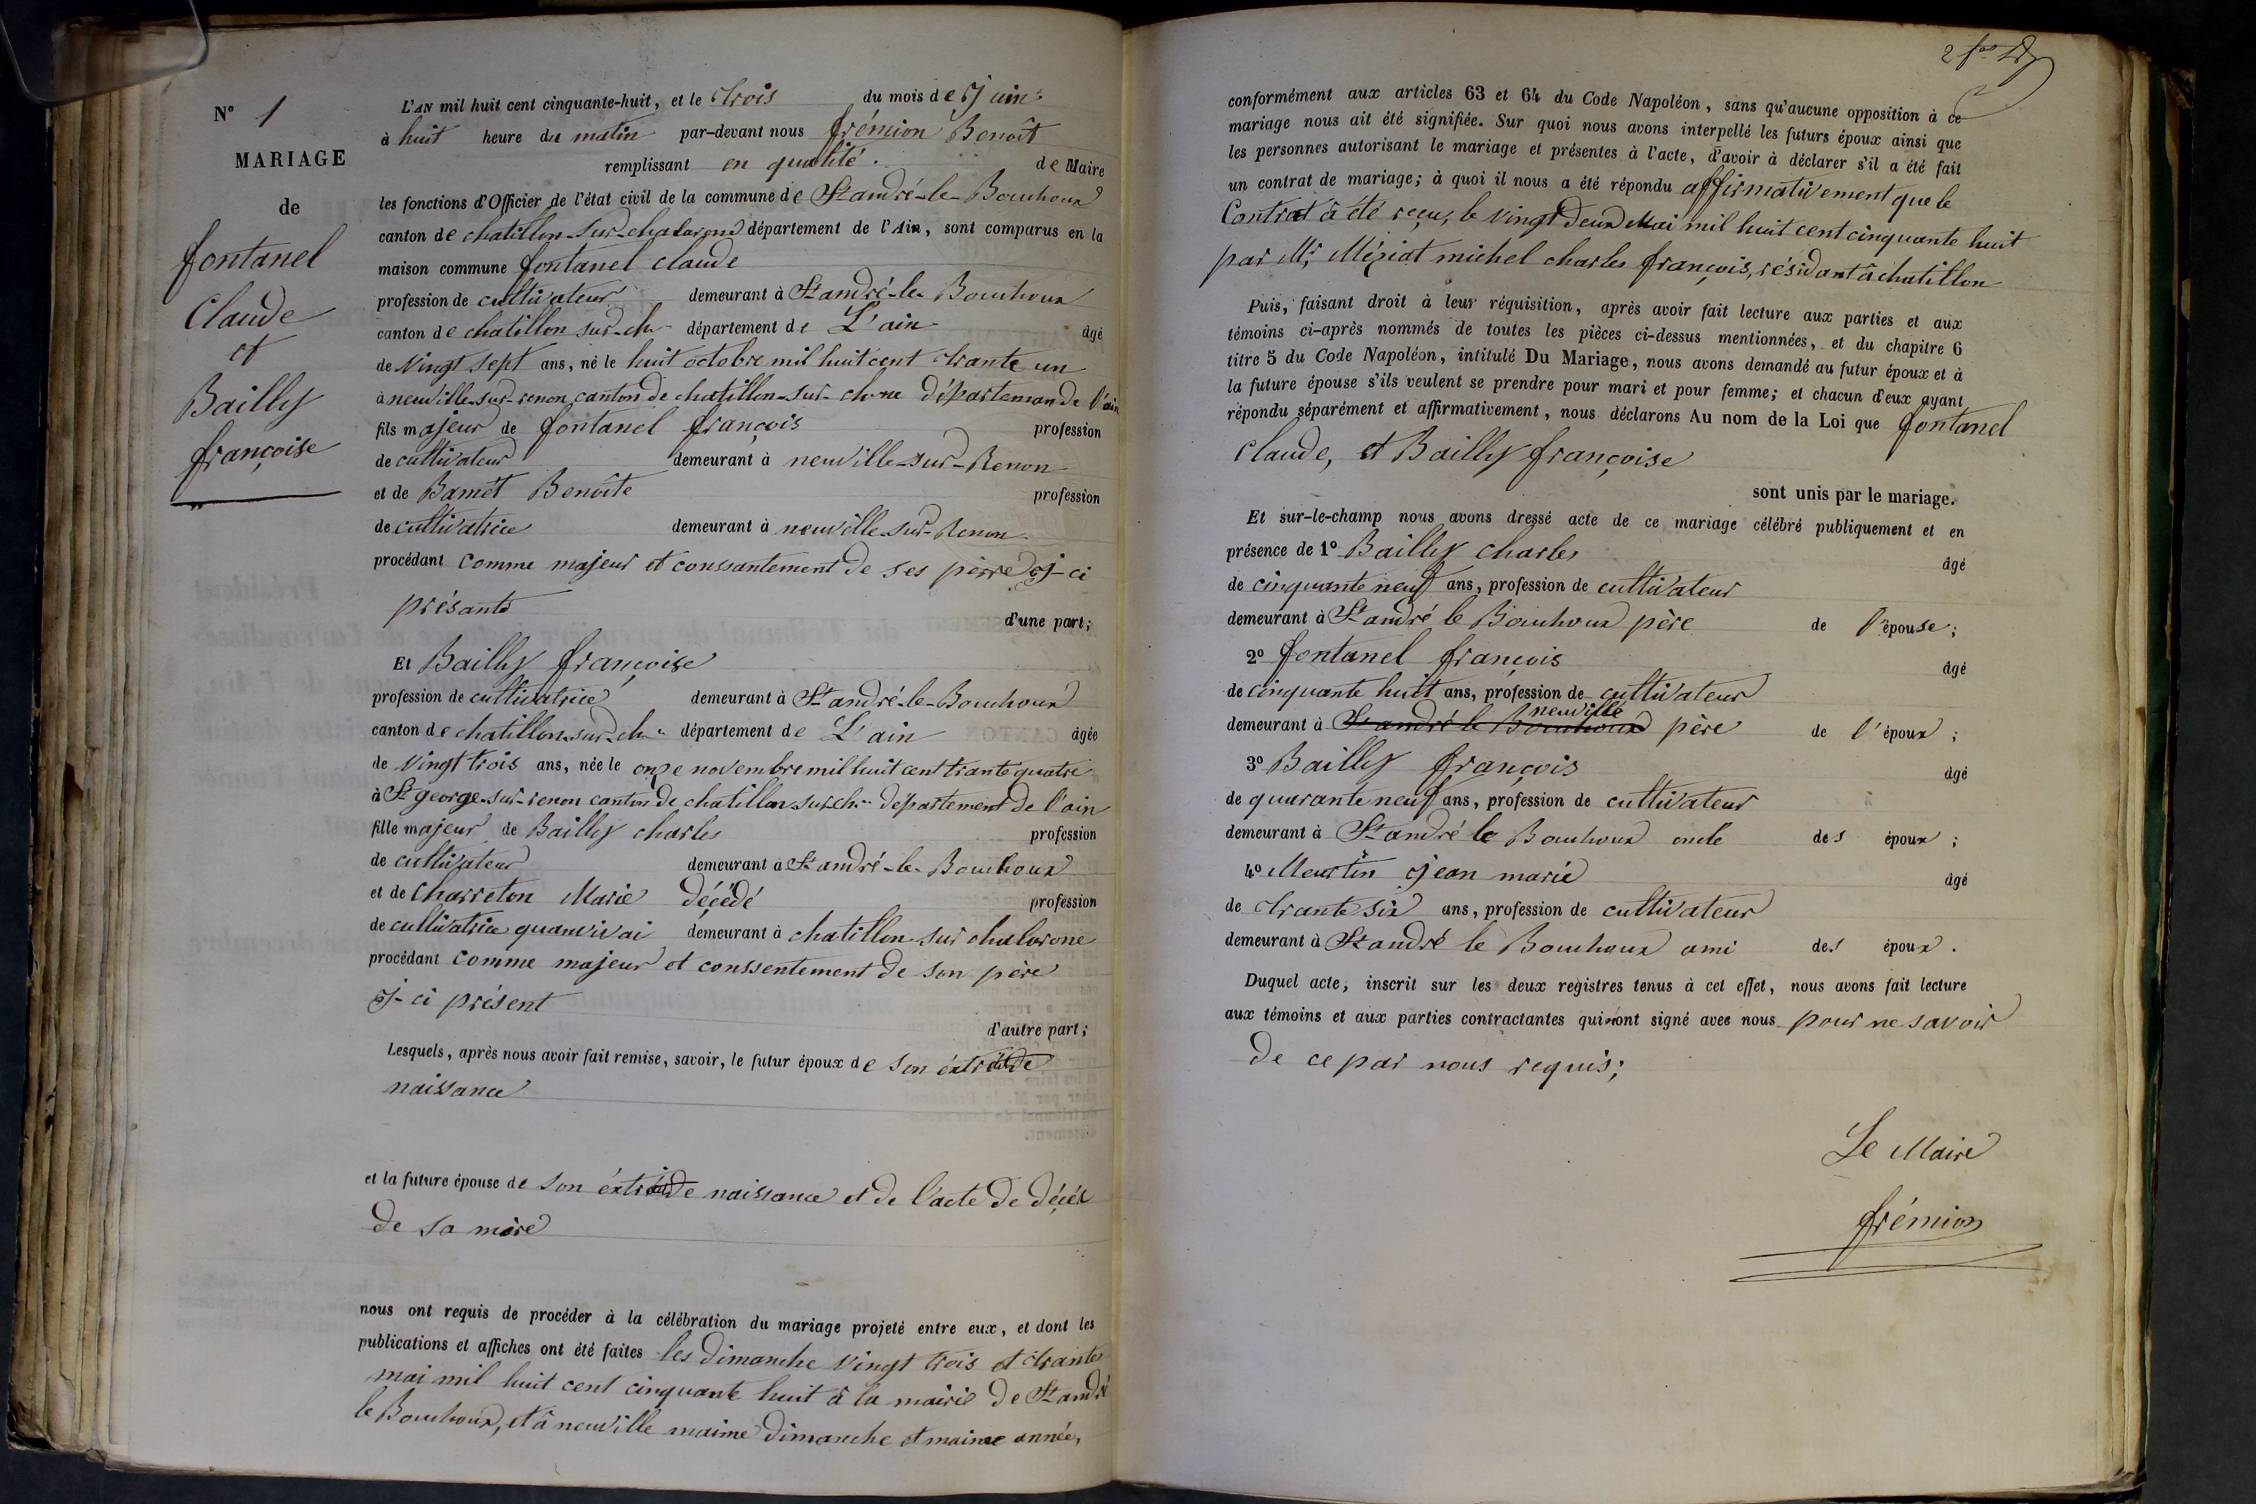 N° 1
MARIAGE
de
fontanel
Claude
et
Bailly
françoise
L'AN mil huit cent cinquante-huit, et le trois du mois de Juin
à huit heure du matin par-devant nous frémion Benoît
remplissant en qualité de Maire
les fonctions d'Officier de l'état civil de la commune de St andré-le-Bouchoux
canton de chatillon-sur-chalarone département de l'Ain, sont comparus en la
maison commune fontanel claude
profession de cultivateur demeurant à St andré-le-Bouchoux
canton de chatillon sur-ch département de L'ain âgé
de vingt sept ans, né le huit octobre mil huit cent trante un
à neuville-sur-renon canton de chatillon-sur-chne départeman de l'ain
fils majeur de fontanel françois profession
de cultivateur demeurant à neuville-sur-Renon
et de Bamet Benoîte profession
de cultivatrice demeurant à neuville-sur-Renon
procédant comme majeur et conssantement de ses pérre J-ci
présants d'une part;
Et Bailly françoise
profession de cultivatrice demeurant à St andré-le-Bouchoux
canton de chatillon-sur-ch département de L'ain âgée
de vingt trois ans, née le onze novembre mil huit cent trante quatre
à St george-sur-renon canton de chatillon sur ch département de l'ain
fille majeur de Bailly charles profession
de cultivateur demeurant à St andré-le-Bouchoux
et de Charreton Marie décédé profession
de cultivatrice quanvivai demeurant à chatillon sur chalorone
procédant comme majeur et conssentement de son père
J-ci présent
d'autre part;
Lesquels, après nous avoir fait remise, savoir, le futur époux de son éxtrait de
naissance
et la future épouse de son éxtrait de naissance et de l'acte de décéd
de sa mère
nous ont requis de procéder à la célébration du mariage projeté entre eux, et dont les
publications et affiches ont été faites les dimanche vingt trois et trante
mai mil huit cent cinquante huit à la mairie de St andré
le Bouchoux, et à neuville maime dimanche et maime année,
conformément aux articles 63 et 64 du Code Napoléon, sans qu'aucune opposition à ce
mariage nous ait été signifiée. Sur quoi nous avons interpellé les futurs époux ainsi que
les personnes autorisant le mariage et présentes à l'acte, d'avoir à déclarer s'il a été fait
un contrat de mariage; à quoi il nous a été répondu affirmativement que le
Contrat à été reçu, le vingt deux Mai mil huit cent cinquante huit
par Mr Mériat michel charles françois, résidant à chatillon
Puis, faisant droit à leur réquisition, après avoir fait lecture aux parties et aux
témoins ci-après nommés de toutes les pièces ci-dessus mentionnées, et du chapitre 6
titre 5 du Code Napoléon, intitulé Du Mariage, nous avons demandé au futur époux et à
la future épouse s'ils veulent se prendre pour mari et pour femme; et chacun d'eux ayant
répondu séparément et affirmativement, nous déclarons Au nom de la Loi que fontanel
claude, et Bailly françoise
sont unis par le mariage.
Et sur-le-champ nous avons dressé acte de ce mariage célébré publiquement et en
présence de 1° Bailly charles âgé
de cinquante neuf ans, profession de cultivateur
demeurant à St andré le Bouchoux père de l'épouse;
2° fontanel françois âgé
de cinquante huit ans, profession de cultivateur
neuville
demeurant à St andré le Bouchoux père de l'époux;
3° Bailly françois âgé
de quarante neuf ans, profession de cultivateur
demeurant à St andré le Bouchoux oncle des époux;
4° Meurtin Jean marie âgé
de trante six ans, profession de cultivateur
demeurant à St andré le Bouchoux ami des époux.
Duquel acte, inscrit sur les deux registres tenus à cet effet, nous avons fait lecture
aux témoins et aux parties contractantes qui n'ont signé avec nous pour ne savoir
de ce par nous requis;
Le Maire
frémion